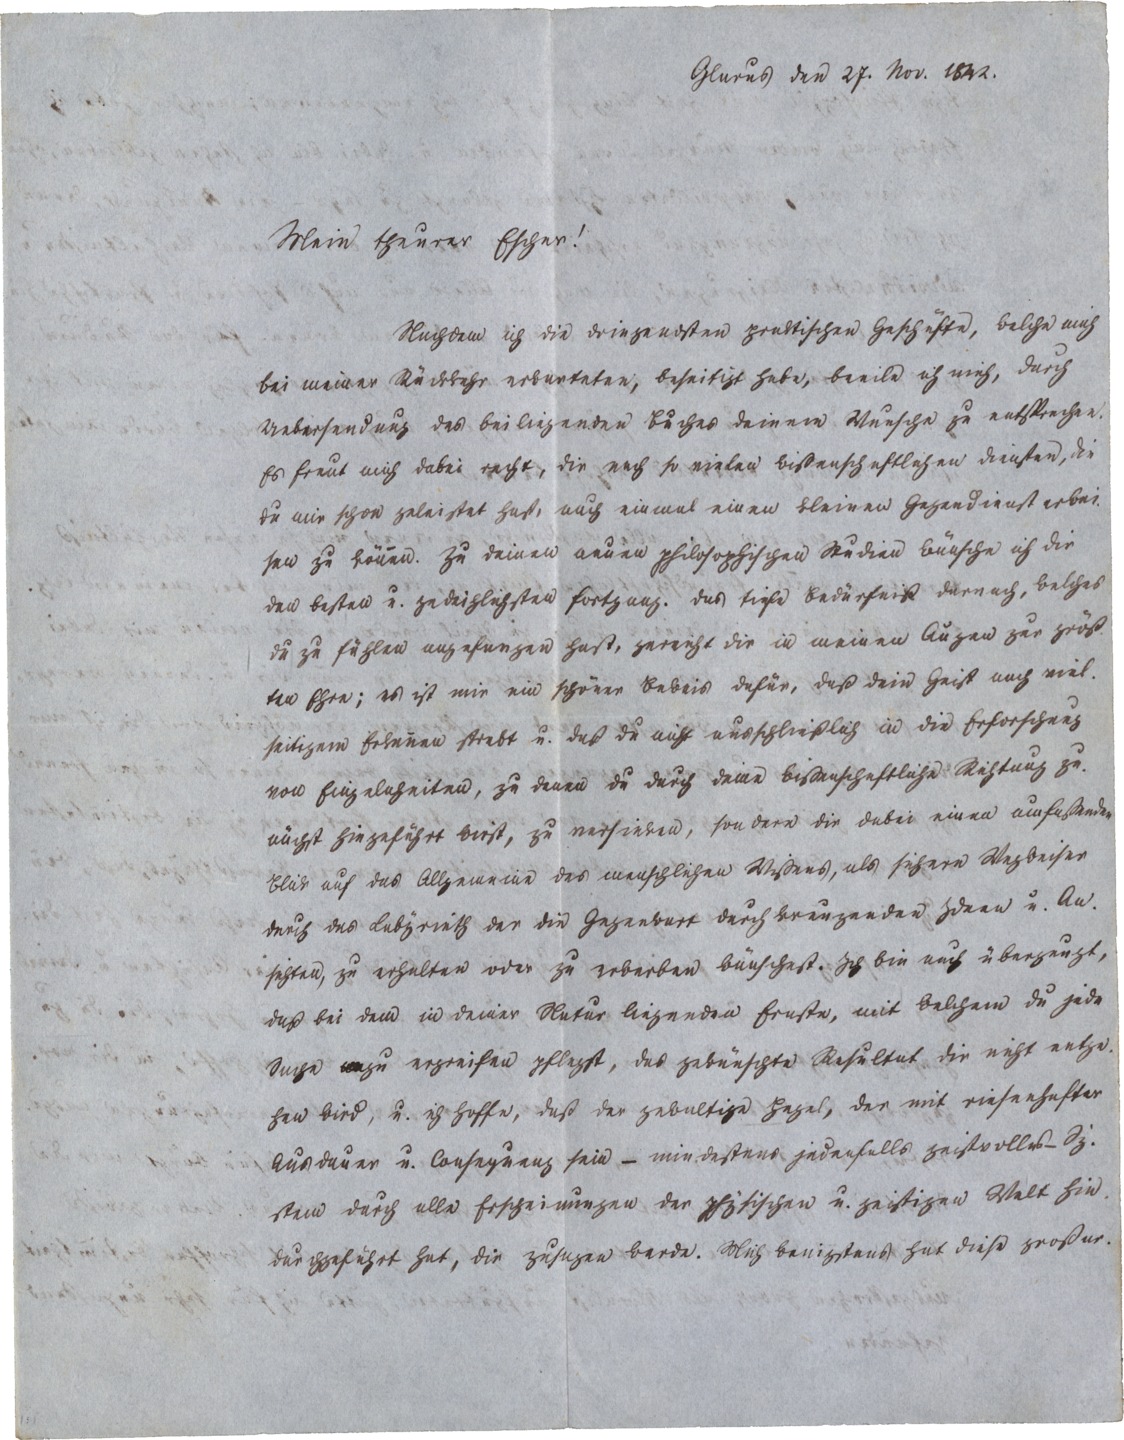 Glarus den 27. Nov. 1842.
Mein theurer Escher!
Nachdem ich die dringendsten praktischen Geschäfte, welche mich
bei meiner Rückkehr erwarteten, beseitigt habe, beeile ich mich, durch
Uebersendung des beiliegenden Buches deinem Wunsche zu entsprechen.
Es freut mich dabei recht, dir nach so vielen wissenschaftlichen Diensten, die
du mir schon geleistet hast, auch einmal einen kleinen Gegendienst erwei-
sen zu können. Zu deinen neuen philosophischen Studien wünsche ich dir
den besten u. gedeihlichsten Fortgang. Das tiefe Bedürfniß darnach, welches
du zu fühlen angefangen hast, gereicht dir in meinen Augen zur größ-
ten Ehre; es ist mir ein schöner Beweis dafür, daß dein Geist nach viel-
seitigem Erkennen strebt u. daß du nicht ausschließlich in die Erforschung
von Einzelnheiten, zu denen du durch deine wissenschaftliche Richtung zu-
nächst hingeführt wirst, zu versinken, sondern dir dabei einen umfassenden
Blick auf das Allgemeine des menschlichen Wissens, als sichern Wegweiser
durch das Labyrinth der die Gegenwart durchkreuzenden Ideen u. An-
sichten, zu erhalten oder zu erwerben wünschest. Ich bin auch überzeugt,
daß bei dem in deiner Natur liegenden Ernste, mit welchem du jede
Sache zu ergreifen pflegst, das gewünschte Resultat dir nicht entge-
hen wird, u. ich hoffe, daß der gewaltige Hegel, der mit riesenhafter
Ausdauer u. Consequenz sein – mindestens jedenfalls geistvolles – Sy-
stem durch alle Erscheinungen der physischen u. geistigen Welt hin-
durchgeführt hat, dir zusagen werde. Mich wenigstens hat diese großar-